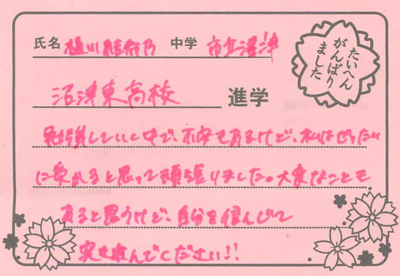 氏名 植川結奈乃 中学 市立沼津
たいへん
がんばり
ました
沼津東高校 進学
勉強していく中で、不安もあるけど、私はぜったい
に受かると思って頑張りました。大変なことも
あると思うけど、自分を信じて
突き進んでください!!